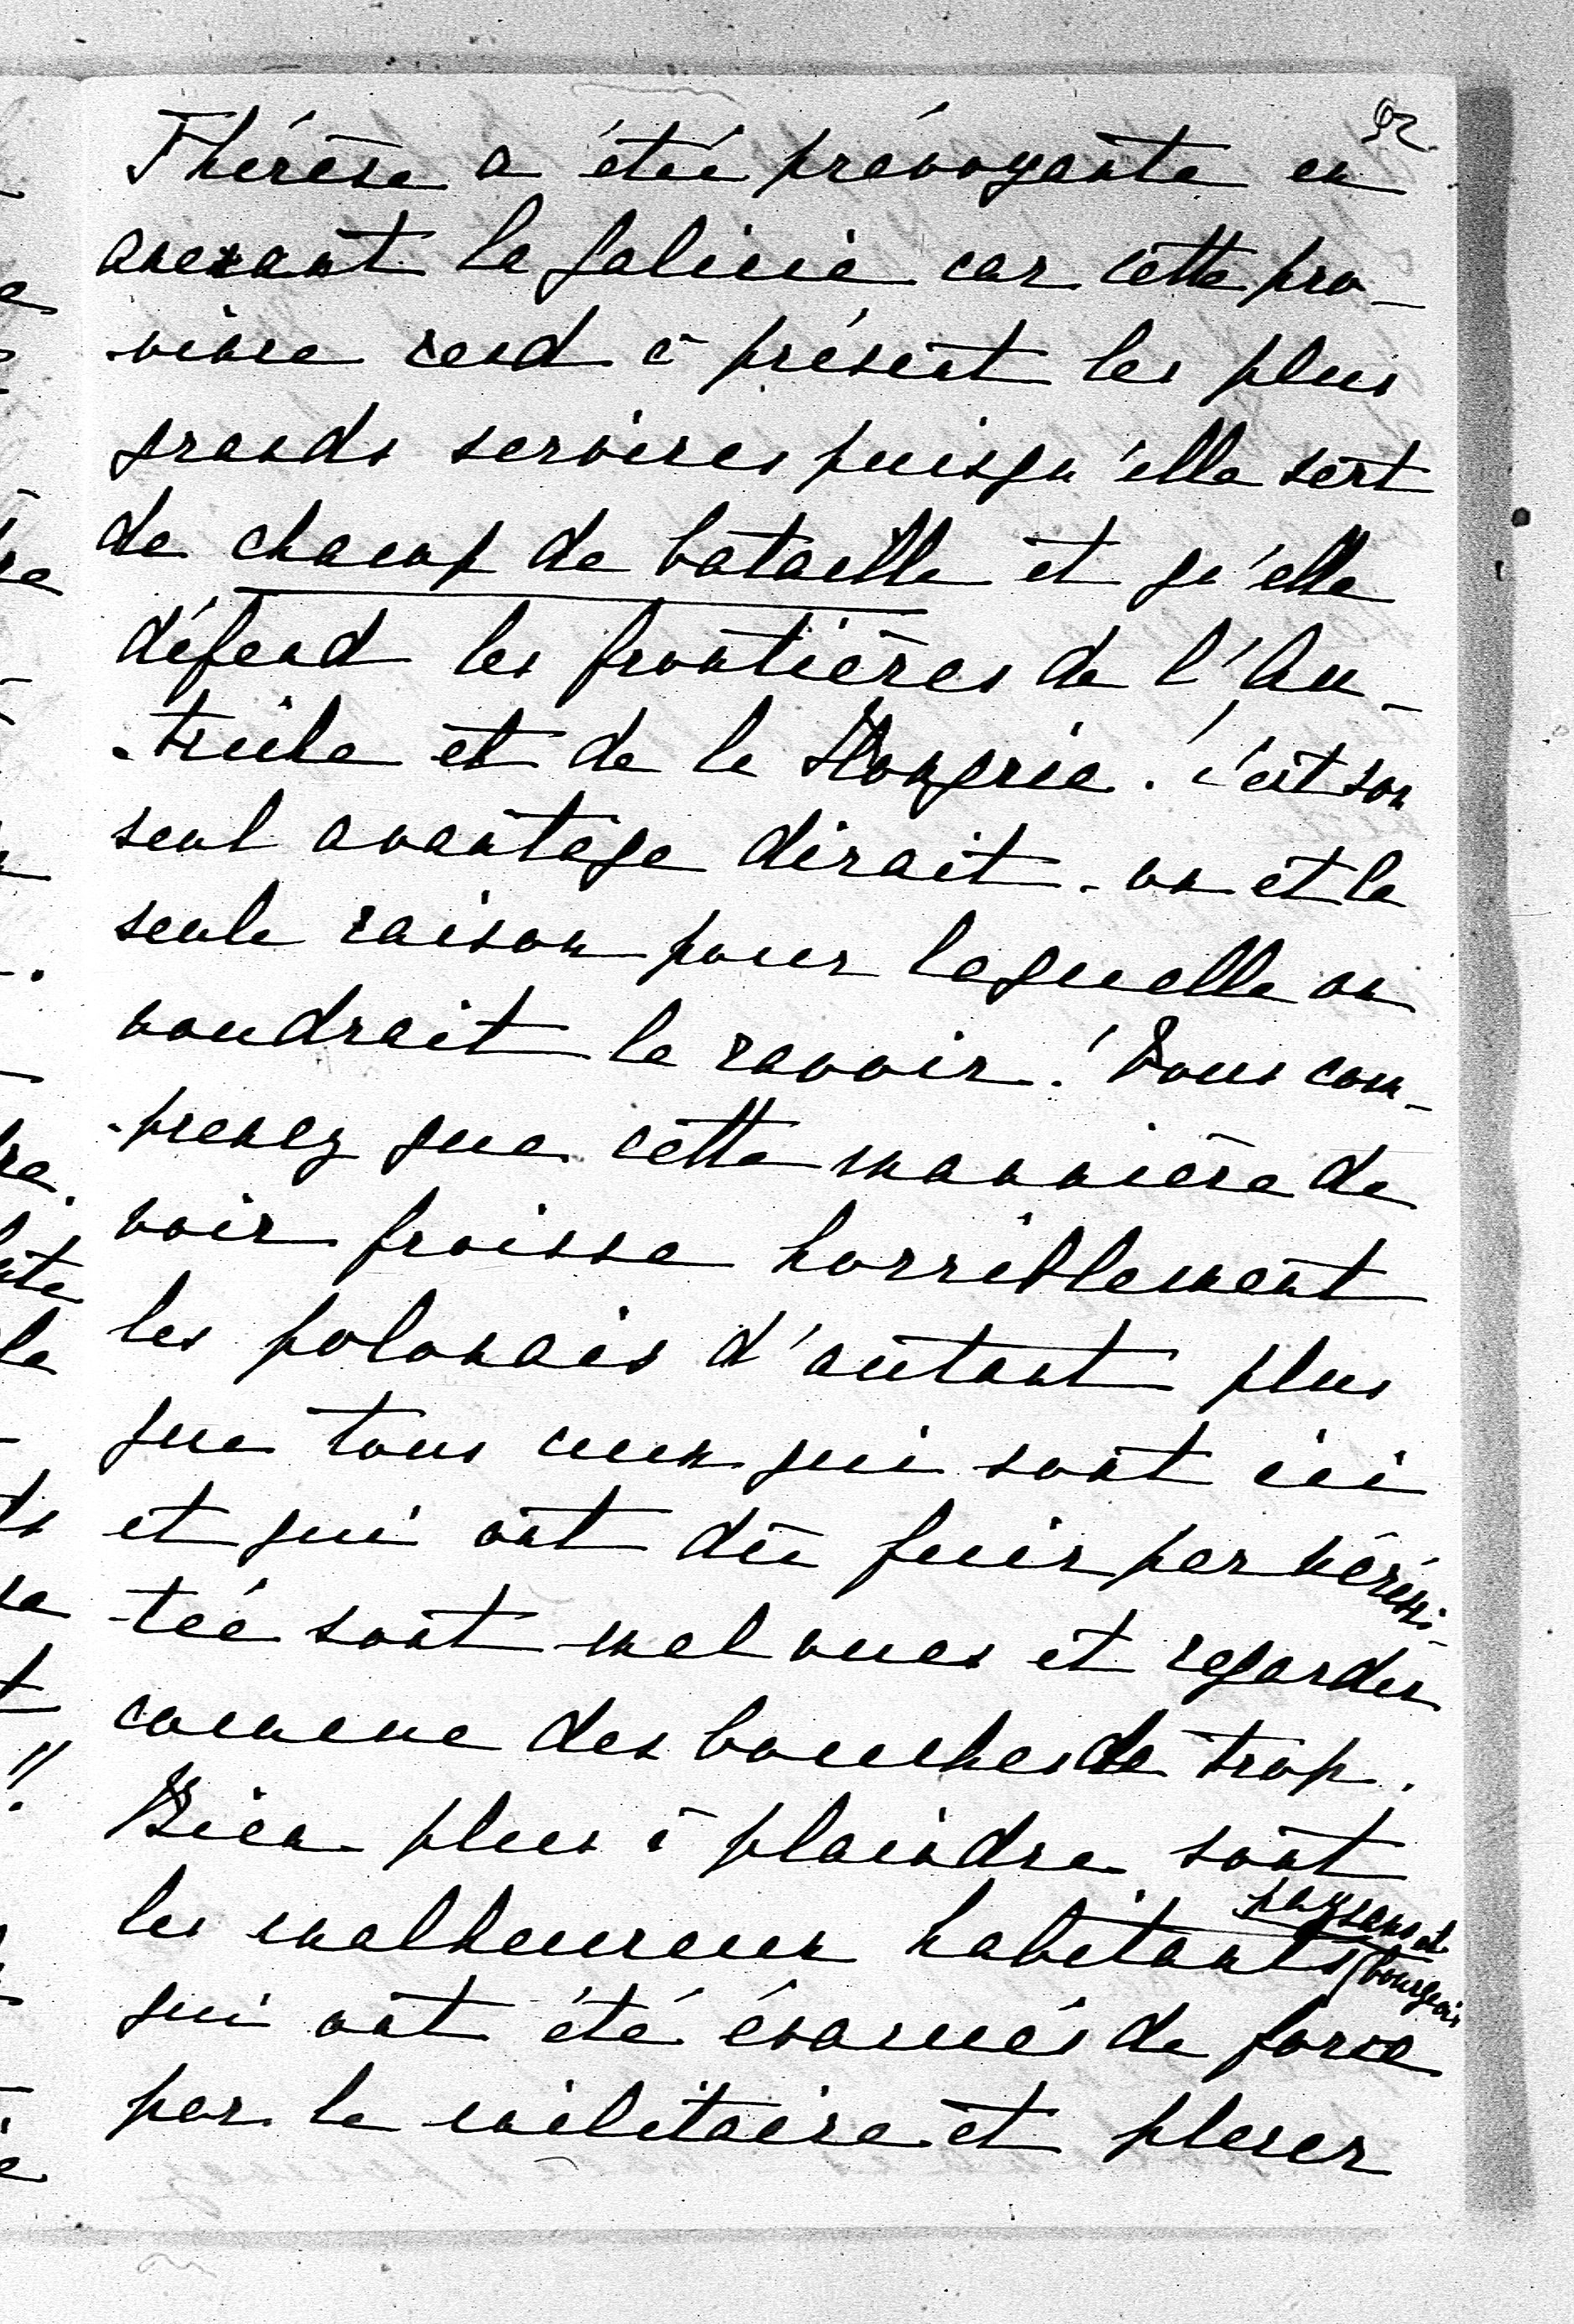 92.
Thérèse a étée prévoyante en
anexant la galicie car cette pro-
-vince rend à présent les plus
grands services puisqu'elle sert
de champ de bataille et qu'elle
défend les frontières de l'Au-
-triche et de la Hongrie! c'est son
seul avantage dirait-on et la
seule raison pour laquelle on
voudrait la ravoir! Vous com-
-prenez que cette mannière de
voir froisse horriblement
les polonais d'autant plus
que tous ceux qui sont ici
et qui ont dû fuir par nécessi-
-téé sont mal vues et regardés
comme des bouches de trop.
Bien plus à plaindre sont
les malheureux habitants paysans et bourgeois
qui ont été évacués de force
par le militaire et placer